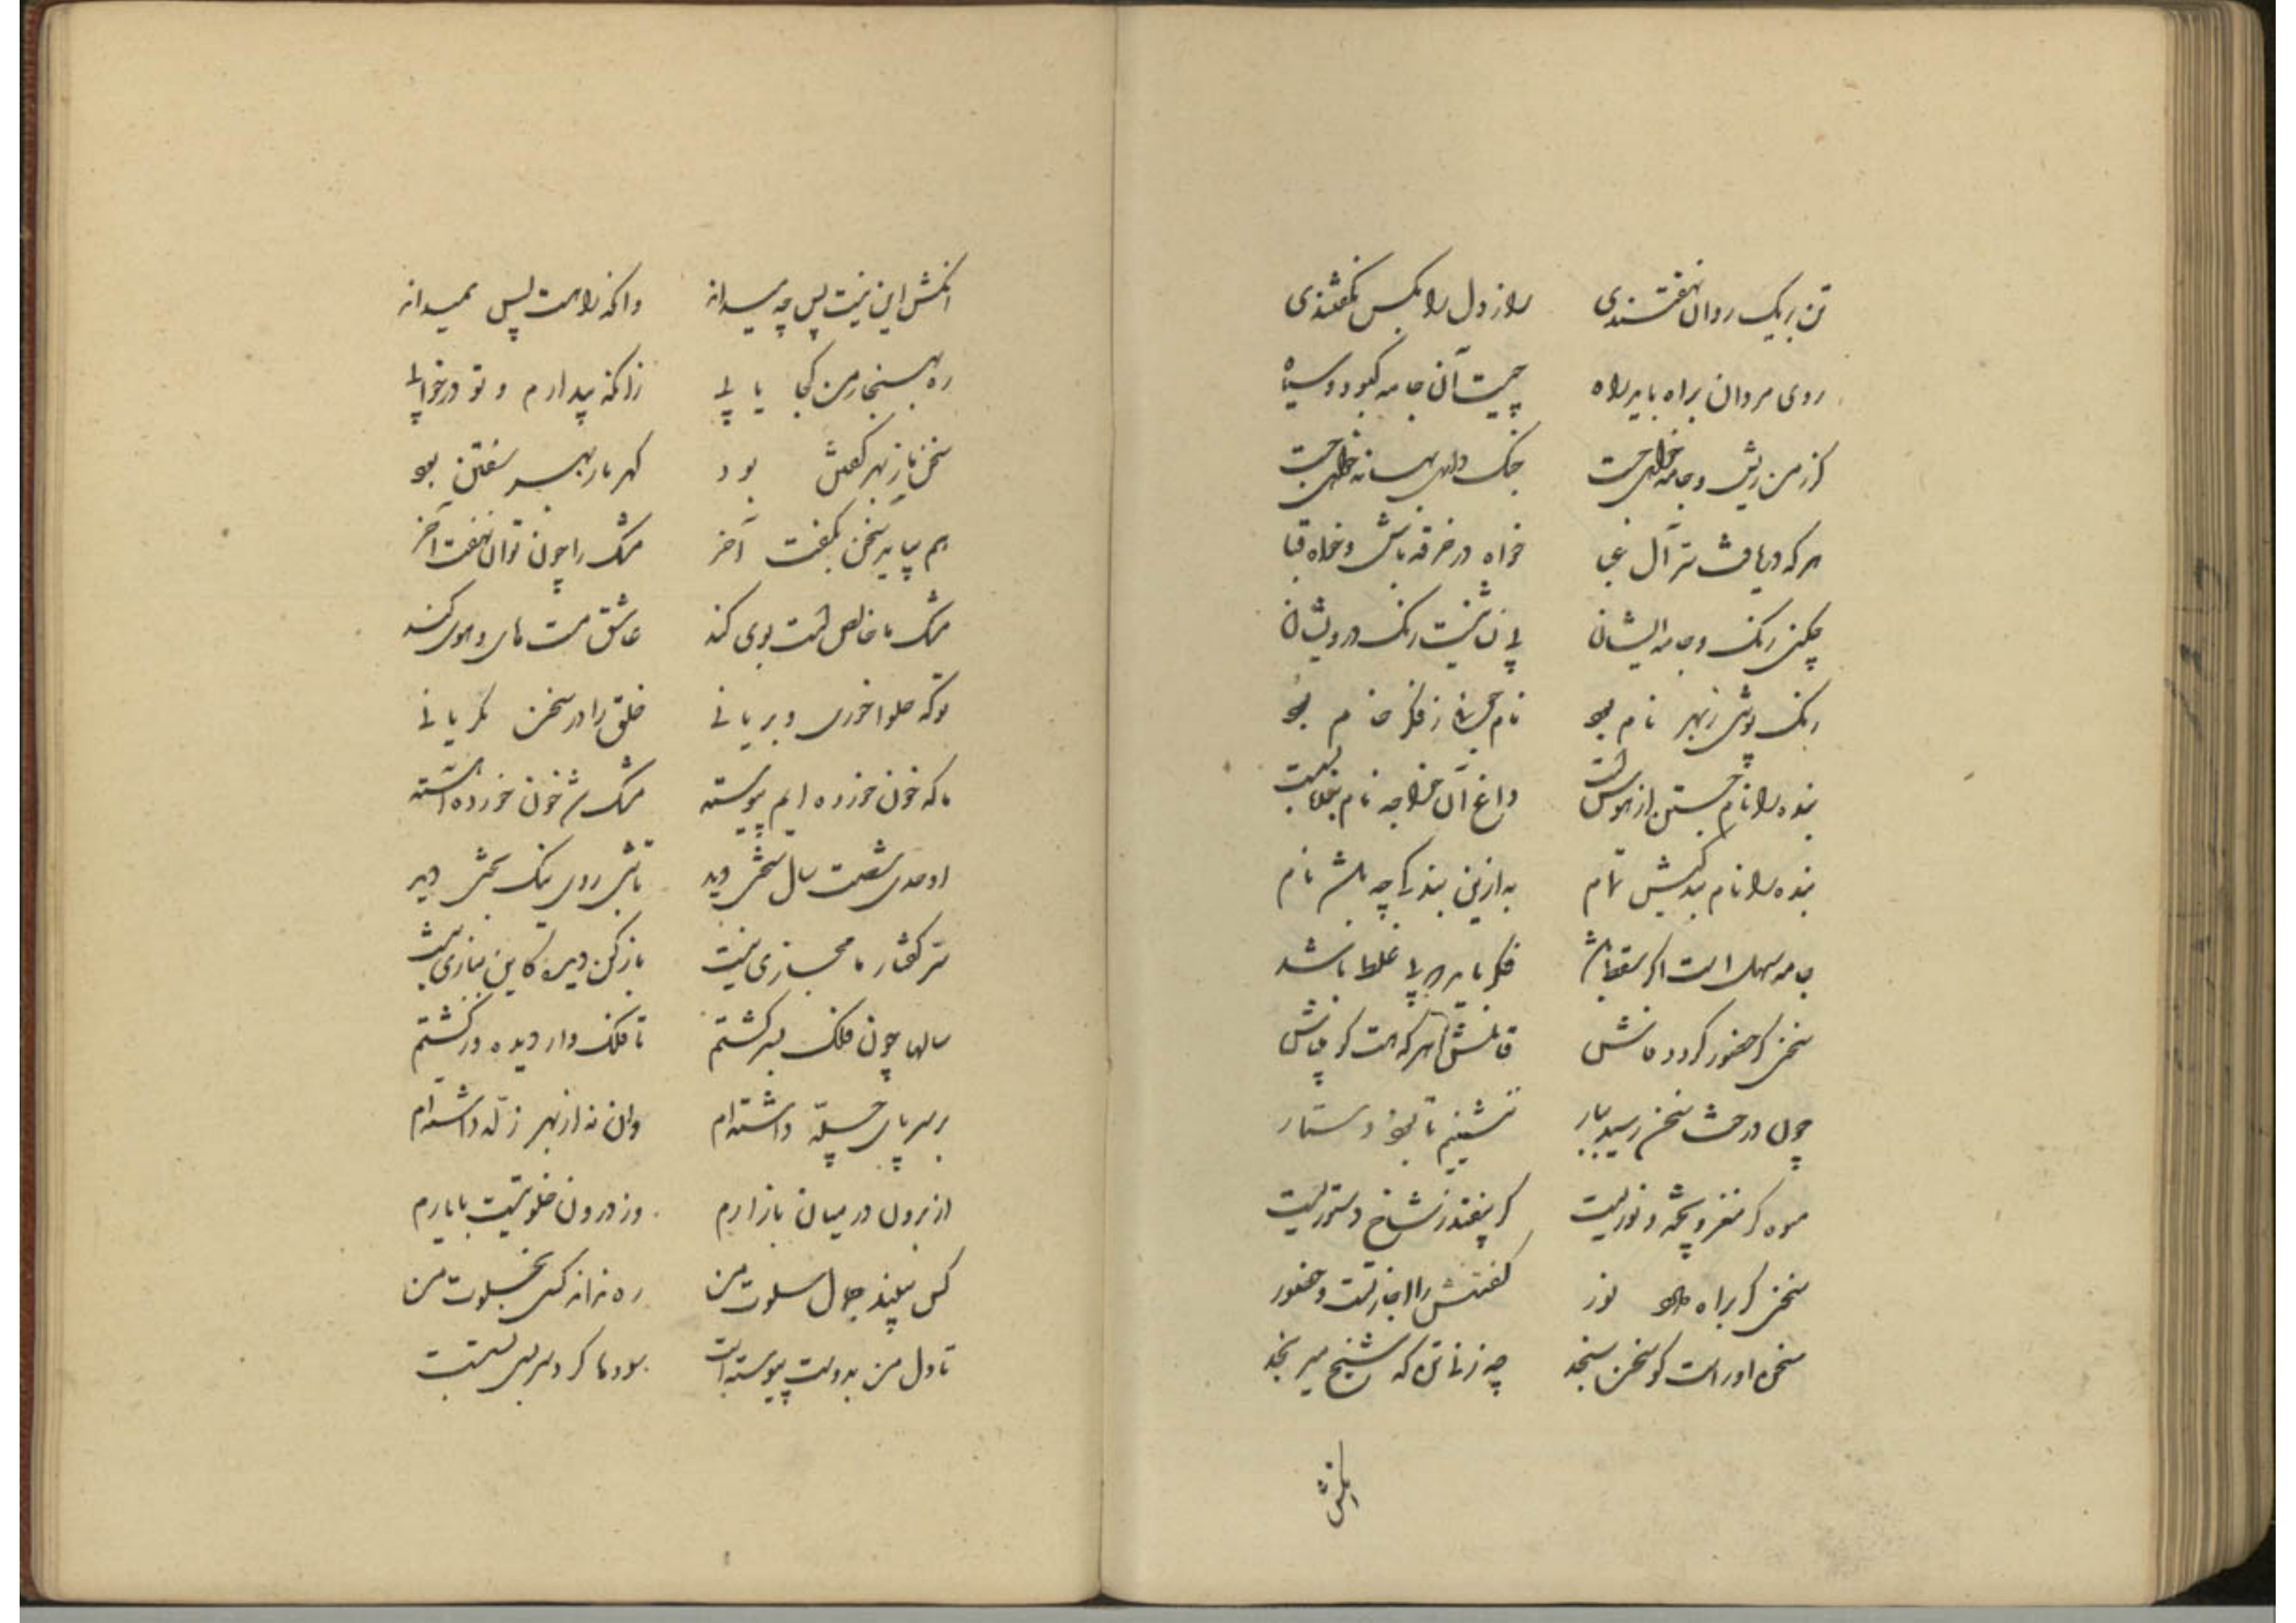 تن بریک روان نهفتندی راز دل را بکس نگفتندی
روی مردان براه باید راه چیست آن جامه کبود و سیاه
کز من ریش و جامه خواهی جست جنک داری بهانه خواهی جست
هر که دریافت سر آل عبا خواه در خرقه باش و خواه قبا
چکنی رنک و جامه ایشان بی نشانیست رنک درویشان
رنک پوشی ز بهر نام بود نام جویی ز فکر خام بود
بنده را نام جستن از هوسست داغ آن خواجه نام بنده بسست
بنده را نام بندگیش تمام به ازین بنده را چه باشد نام
جامه سهل است اگر سقط باشد فکر باید که بی غلط باشد
سخنی کز حضور گردد فاش قابلش هر که هست گو میباش
چون درخت سخن رسید ببار ننشینم تا بخود دستار
میوه کز مغز و پخته و نوریست گر بیفتد ز شاخ دستوریست
سخنی کز براه نور گفتنش را اجازتست و حضور
سخن او راست کو سخن سنجد چه زند آنکه شنج میرنجد
انکش
انکش این نیست پس چه میداند وانکه را هست پس نمیداند
ره بهنجار من کجا یابی زانکه بیدارم و تو در خوابی
سخن باز بهر گفتن بود گهر ما ز بهر سفتن بود
هم بباید سخن بگفت آخر مشک را چون توان نهفت آخر
مشک ما خالص است بوی کند عاشق مست های و هوی کند
تو که حلوا خوری و بریانی خلق را در سخن بگریانی
ما که خون خورده ایم پیوسته مشک شد خون خورده آهسته
اوحدی شصت سال سختی دید تا شبی روی نیک بختی دید
سر گفتار ما مجازی نیست باز کن دیده کاین ببازی نیست
سالها چون فلک بسر گشتم تا فلک وار دیده ور گشتم
بر سر پای چله داشته ام وان نه از بهر زله داشته ام
از برون در میان بازارم وز درون خلوتیست با یارم
کس نبیند جمال سلوت من ره نداند کسی بخلوت من
تا دل من بدوست پیوسته است